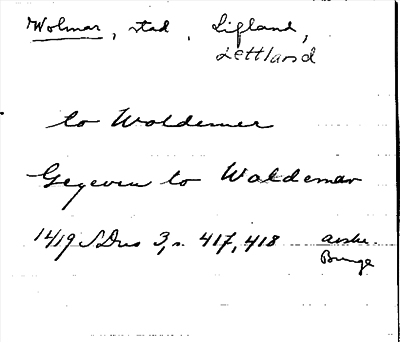 Wolmar, stad, Lifland,
Lettland
to Woldemer
Gegeven to Woldemar
1419 SDns 3, s. 417, 418
Bunge